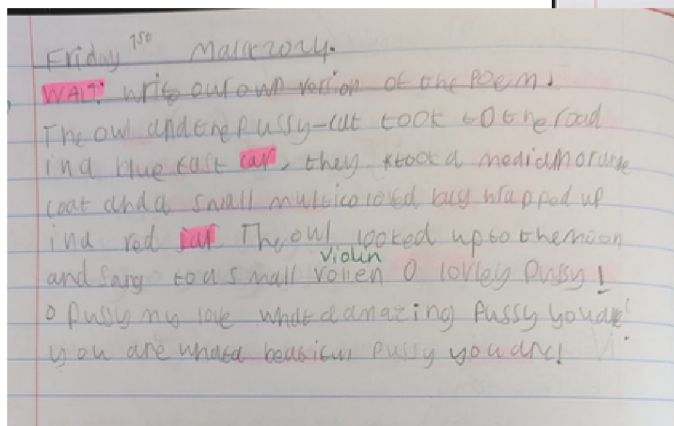 Friday 1st March 2024.
WALT: write our own version of the poem.
The owl and the pussy-cat took to the road
in a blue fast car, they took a
coat and a small bug wrapped up
in a red The owl looked up to the moon
violin
and sang to a small vollen O lovley pussy!
O pussy my love what a amazing pussy you are!
you are what a pussy you are!